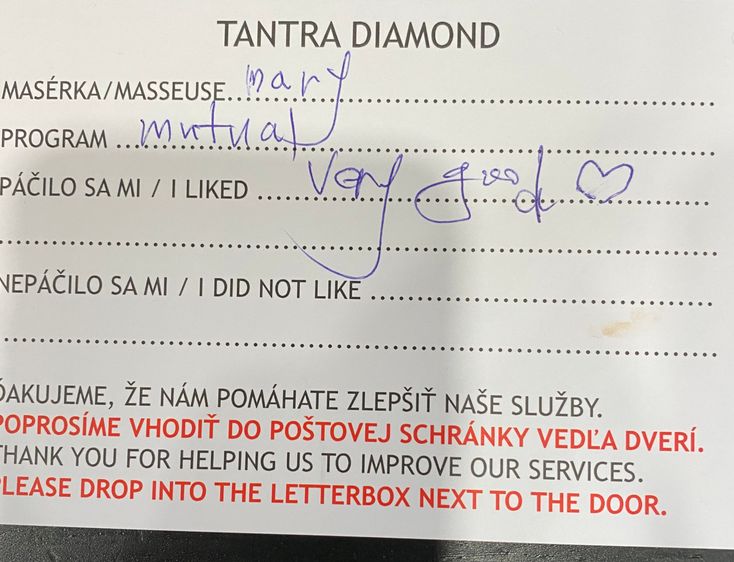 TANTRA DIAMOND
MASÉRKA/MASSEUSE mary
PROGRAM mutual
PÁČILO SA MI / I LIKED very good ♡
NEPÁČILO SA MI / I DID NOT LIKE
ĎAKUJEME, ŽE NÁM POMÁHATE ZLEPŠIŤ NAŠE SLUŽBY.
POPROSÍME VHODIŤ DO POŠTOVEJ SCHRÁNKY VEDĽA DVERÍ.
THANK YOU FOR HELPING US TO IMPROVE OUR SERVICES.
PLEASE DROP INTO THE LETTERBOX NEXT TO THE DOOR.